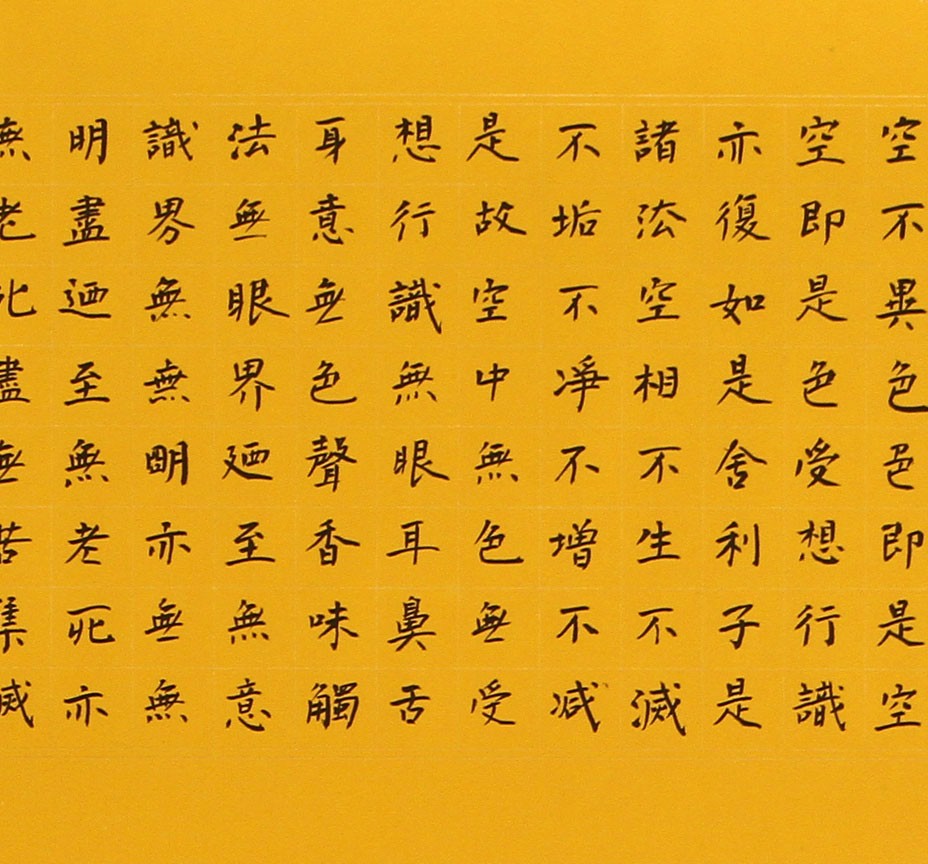 空不異色色即是空
空即是色受想行識
亦復如是舍利子是
諸法空相不生不滅
不垢不淨不增不減
是故空中無色無受
想行識無眼耳鼻舌
身意無色聲香味觸
法無眼界廼至無意
識界無無明亦無無
明盡廼至無老死亦
無老死盡無苦集滅